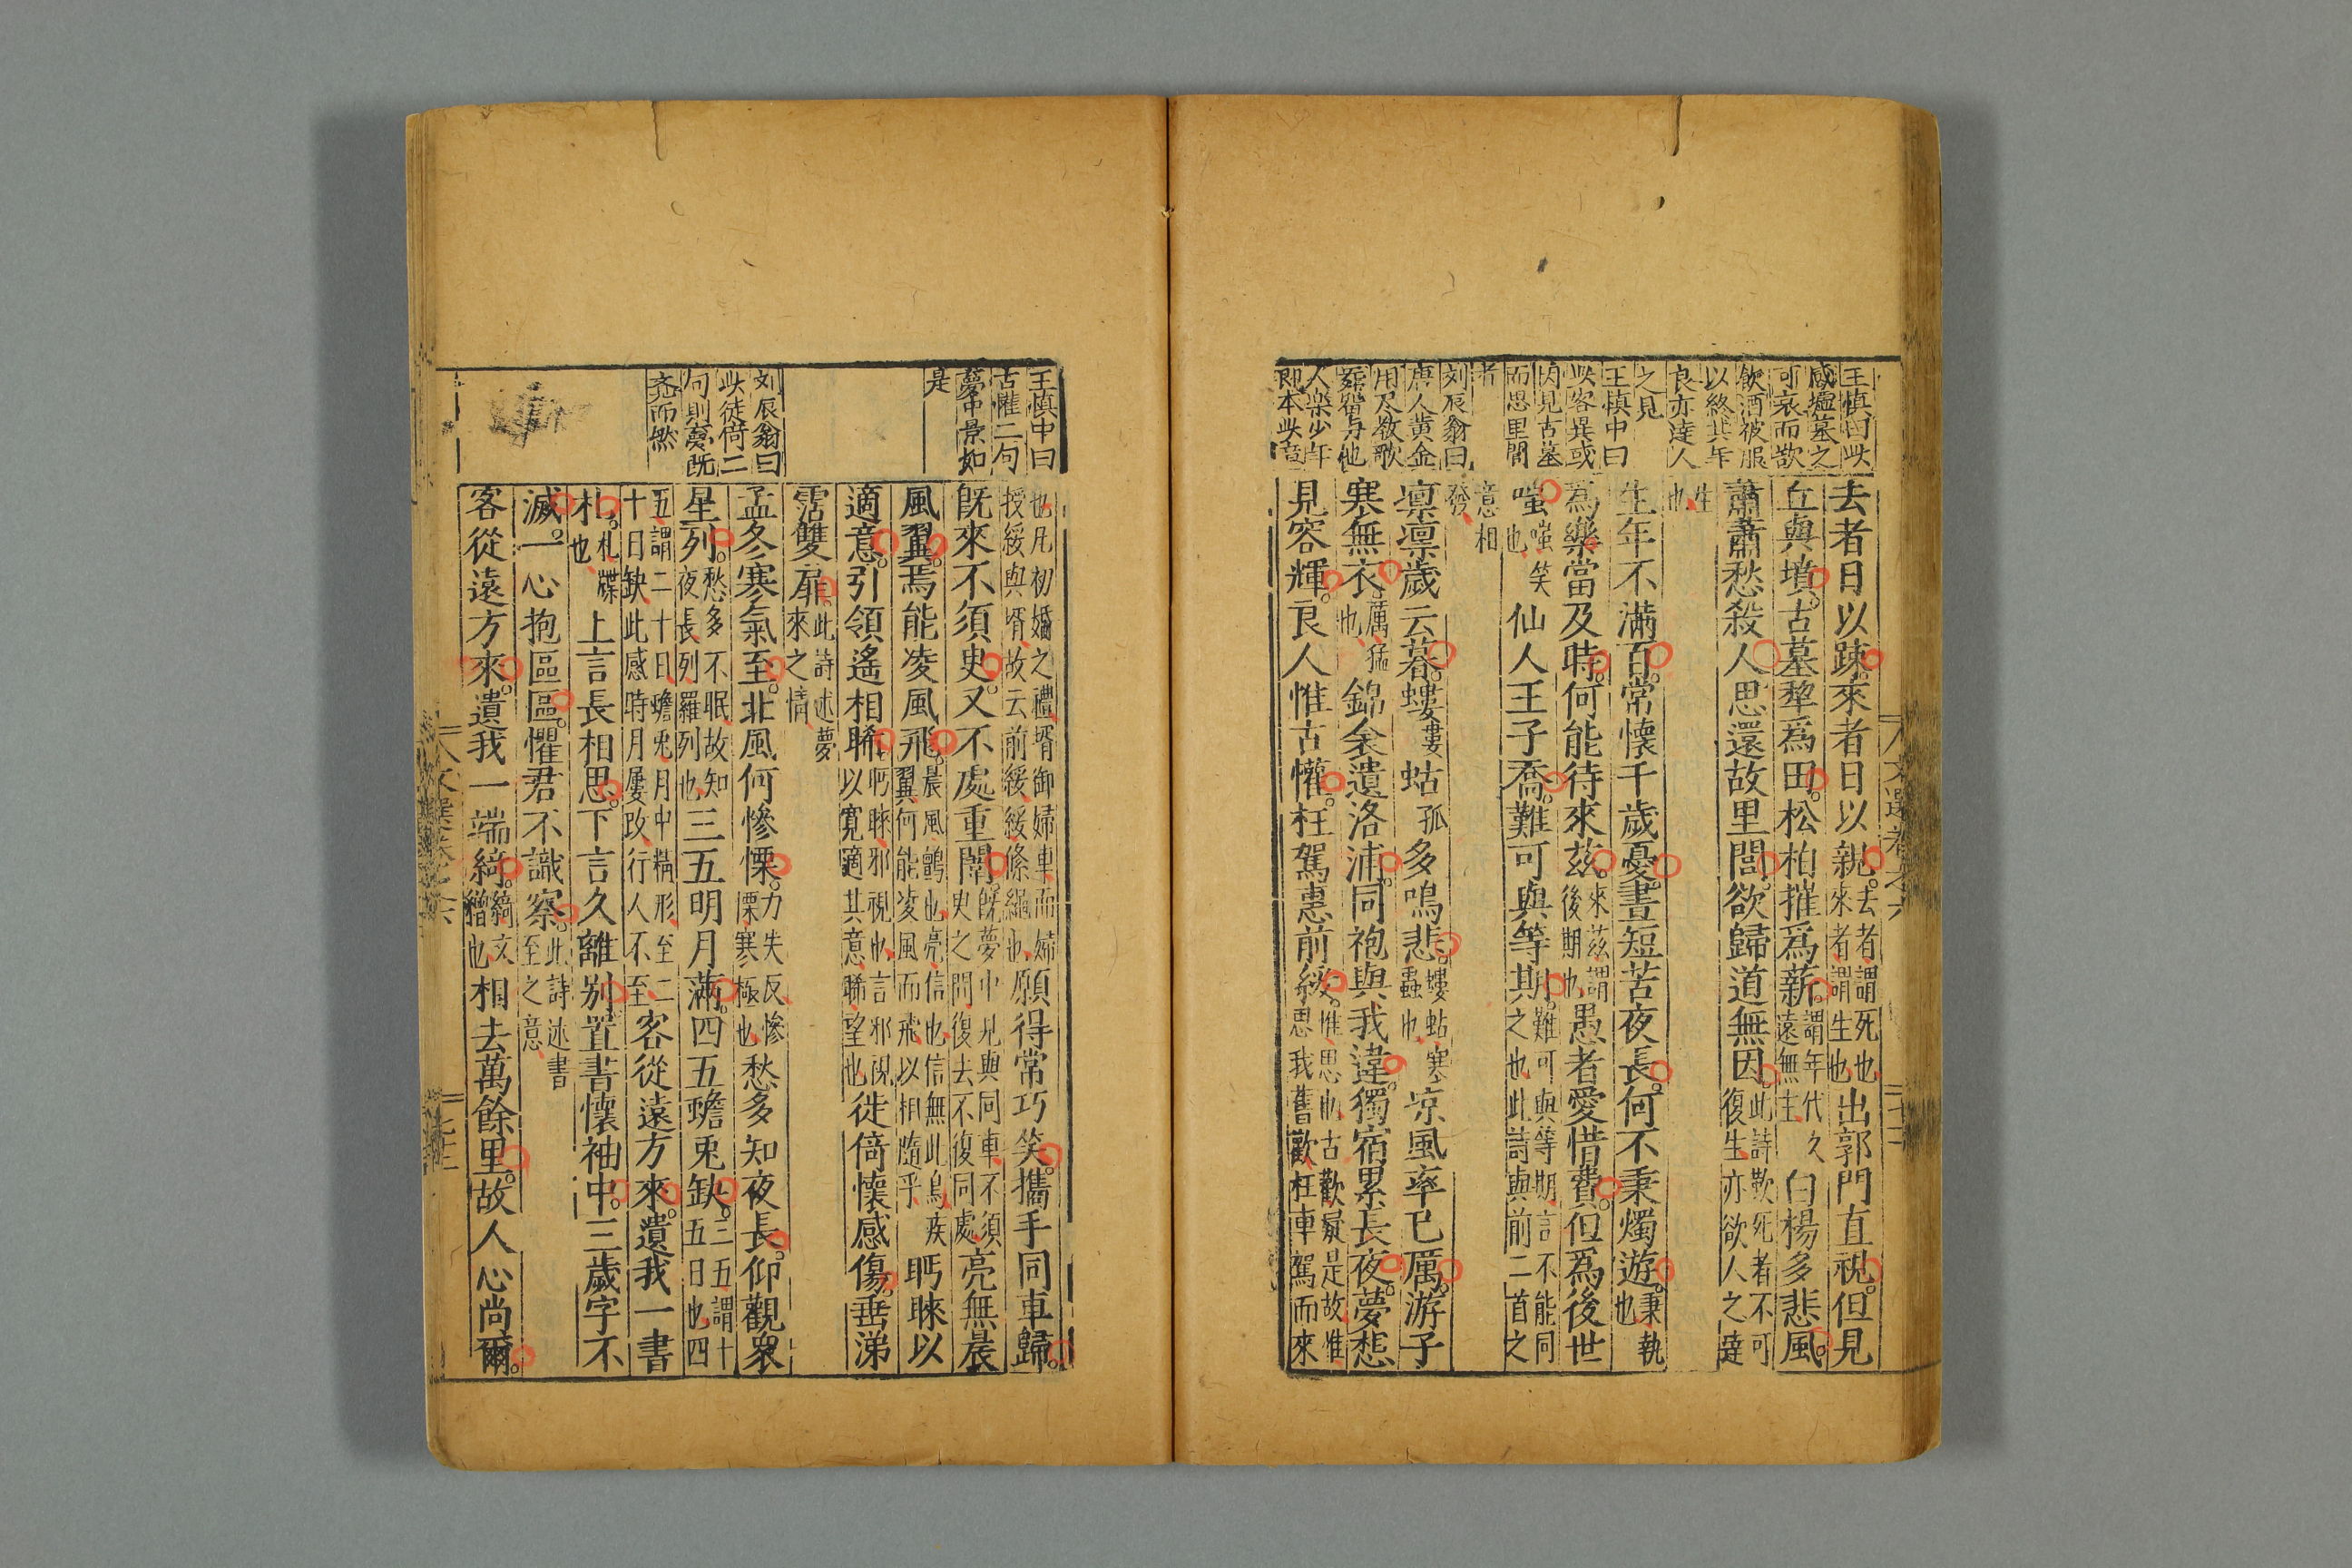 王慎曰此
感墟墓之
可哀而欲
飲酒被服
以終其年
良亦達人
之見
王慎中曰
此客異或
因見古墓
而思里閭
者
刘辰翁曰
唐人黄金
用尽教歌
舞留与他
人樂少年
即本此意
去者日以疎來者日以親去者謂死也來者謂生也出郭門直視但見
丘與墳古墓犂爲田松柏摧爲薪謂年代久遠無主白楊多悲風
蕭蕭愁殺人思還故里閭欲歸道無因此詩歎死者不可復生亦欲人之達
生也
生年不滿百常懷千歲憂晝短苦夜長何不秉燭遊秉執也
爲樂當及時何能待來茲來茲謂後期也愚者愛惜費但爲後世
嗤嗤笑也仙人王子喬難可與等期難可與等期言不能同之也此詩與前二首之
意相發
凛凛歲云暮螻婁蛄孤多鳴悲螻蛄寒蟲也凉風率已厲游子
寒無衣厲猛也錦衾遺洛浦同袍與我違獨宿累長夜夢想
見容輝良人惟古懽枉駕惠前綏惟思也古歡疑是故惟思我舊歡枉車駕而來
王慎中曰
古懽二句
夢中景如
是
刘辰翁曰
此徒倚二
句則憂既
亮而然
也凡初婚之禮壻御婦車而婦授綏與壻故云前綏綏條繩也願得常巧笑攜手同車歸
旣來不須臾又不處重闈旣夢中見與同車不須臾之間復去不復同處亮無晨
風翼焉能凌風飛晨風鸇也亮信也信無此鳥疾翼何能凌風而飛以相隨乎眄睞以
適意引領遙相睎眄睞邪視也言邪視以寬適其意睎望也徙倚懷感傷垂涕
霑雙扉此詩述夢來之情
孟冬寒氣至北風何慘慄力失反慘慄寒極也愁多知夜長仰觀衆
星列愁多不眠故知夜長列羅列也三五明月滿四五蟾兎缺三五謂十五日也四
五謂二十日蟾兎月中精形至二十日缺此感時月屢改行人不至客從遠方來遺我一書
札札牒也上言長相思下言久離别置書懷袖中三歲字不
滅一心抱區區懼君不識察此詩述書至之意
客從遠方來遺我一端綺綺文繒也相去萬餘里故人心尚爾